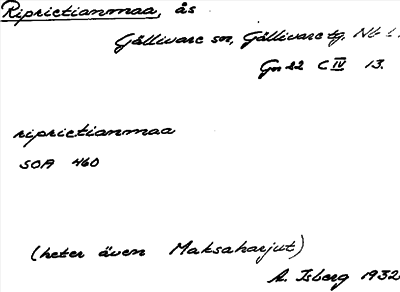 Riprietianmaa, ås
Gällivare sn, Gällivare tg. Nb l.
Gn 22 C IV 13.
riprietianmaa
SOA 460
(heter även Maksaharjut)
A. Isberg 1932